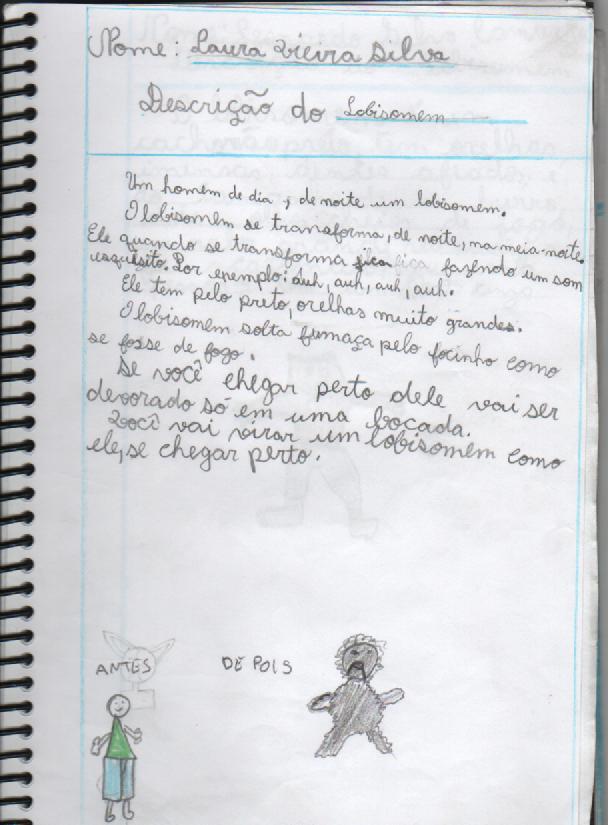 Nome: Laura Vieira Silva
Descrição do Lobisomem
Um homem de dia, de noite um lobisomem.
O lobisomem se transforma, de noite, na meia-noite.
Ele quando se transforma fica fazendo um som
esquisito. Por exemplo: auh, auh, auh, auh.
Ele tem pelo preto, orelhas muito grandes.
O lobisomem solta fumaça pelo focinho como
se fosse de fogo.
Se você chegar perto dele vai ser
devorado só em uma bocada.
Você vai virar um lobisomem como
ele, se chegar perto.
ANTES DEPOIS